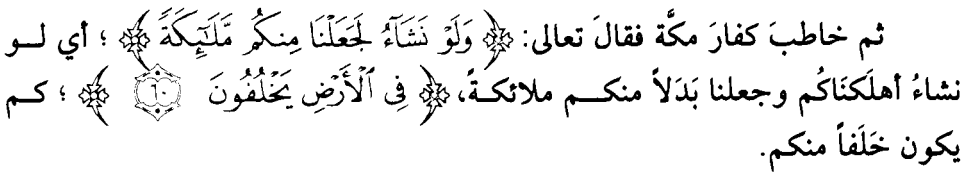 ثم خاطبَ كفارَ مكَّة فقالَ تعالى: ﴿ وَلَوْ نَشَآءُ لَجَعَلْنَا مِنكُم مَّلَـٰٓئِكَةً ﴾ ؛ أي لـو
نشاءُ أهلَكنَاكُم وجعلنا بَدَلاً منكـم ملائكـةً، ﴿ فِى ٱلْأَرْضِ يَخْلُفُونَ ۝٦٠ ﴾ ؛ كـم
يكون خَلَفاً منكم.